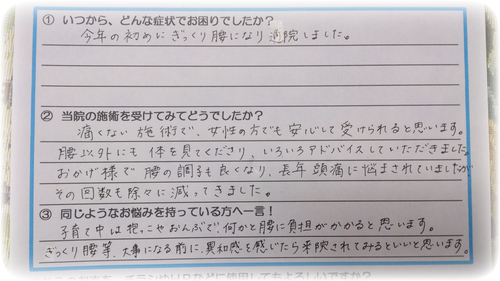 ① いつから、どんな症状でお困りでしたか?
今年の初めにぎっくり腰になり通院しました。
② 当院の施術を受けてみてどうでしたか?
痛くない施術で、女性の方でも安心して受けられると思います。
腰以外にも体を見てくださり、いろいろアドバイスしていただきました。
おかげ様で腰の調子も良くなり、長年頭痛に悩まされていましたが
その回数も徐々に減ってきました。
③ 同じようなお悩みを持っている方へ一言!
子育て中は抱っこやおんぶで、何かと腰に負担がかかると思います。
ぎっくり腰等、大事になる前に、異和感を感じたら来院されてみるといいと思います。